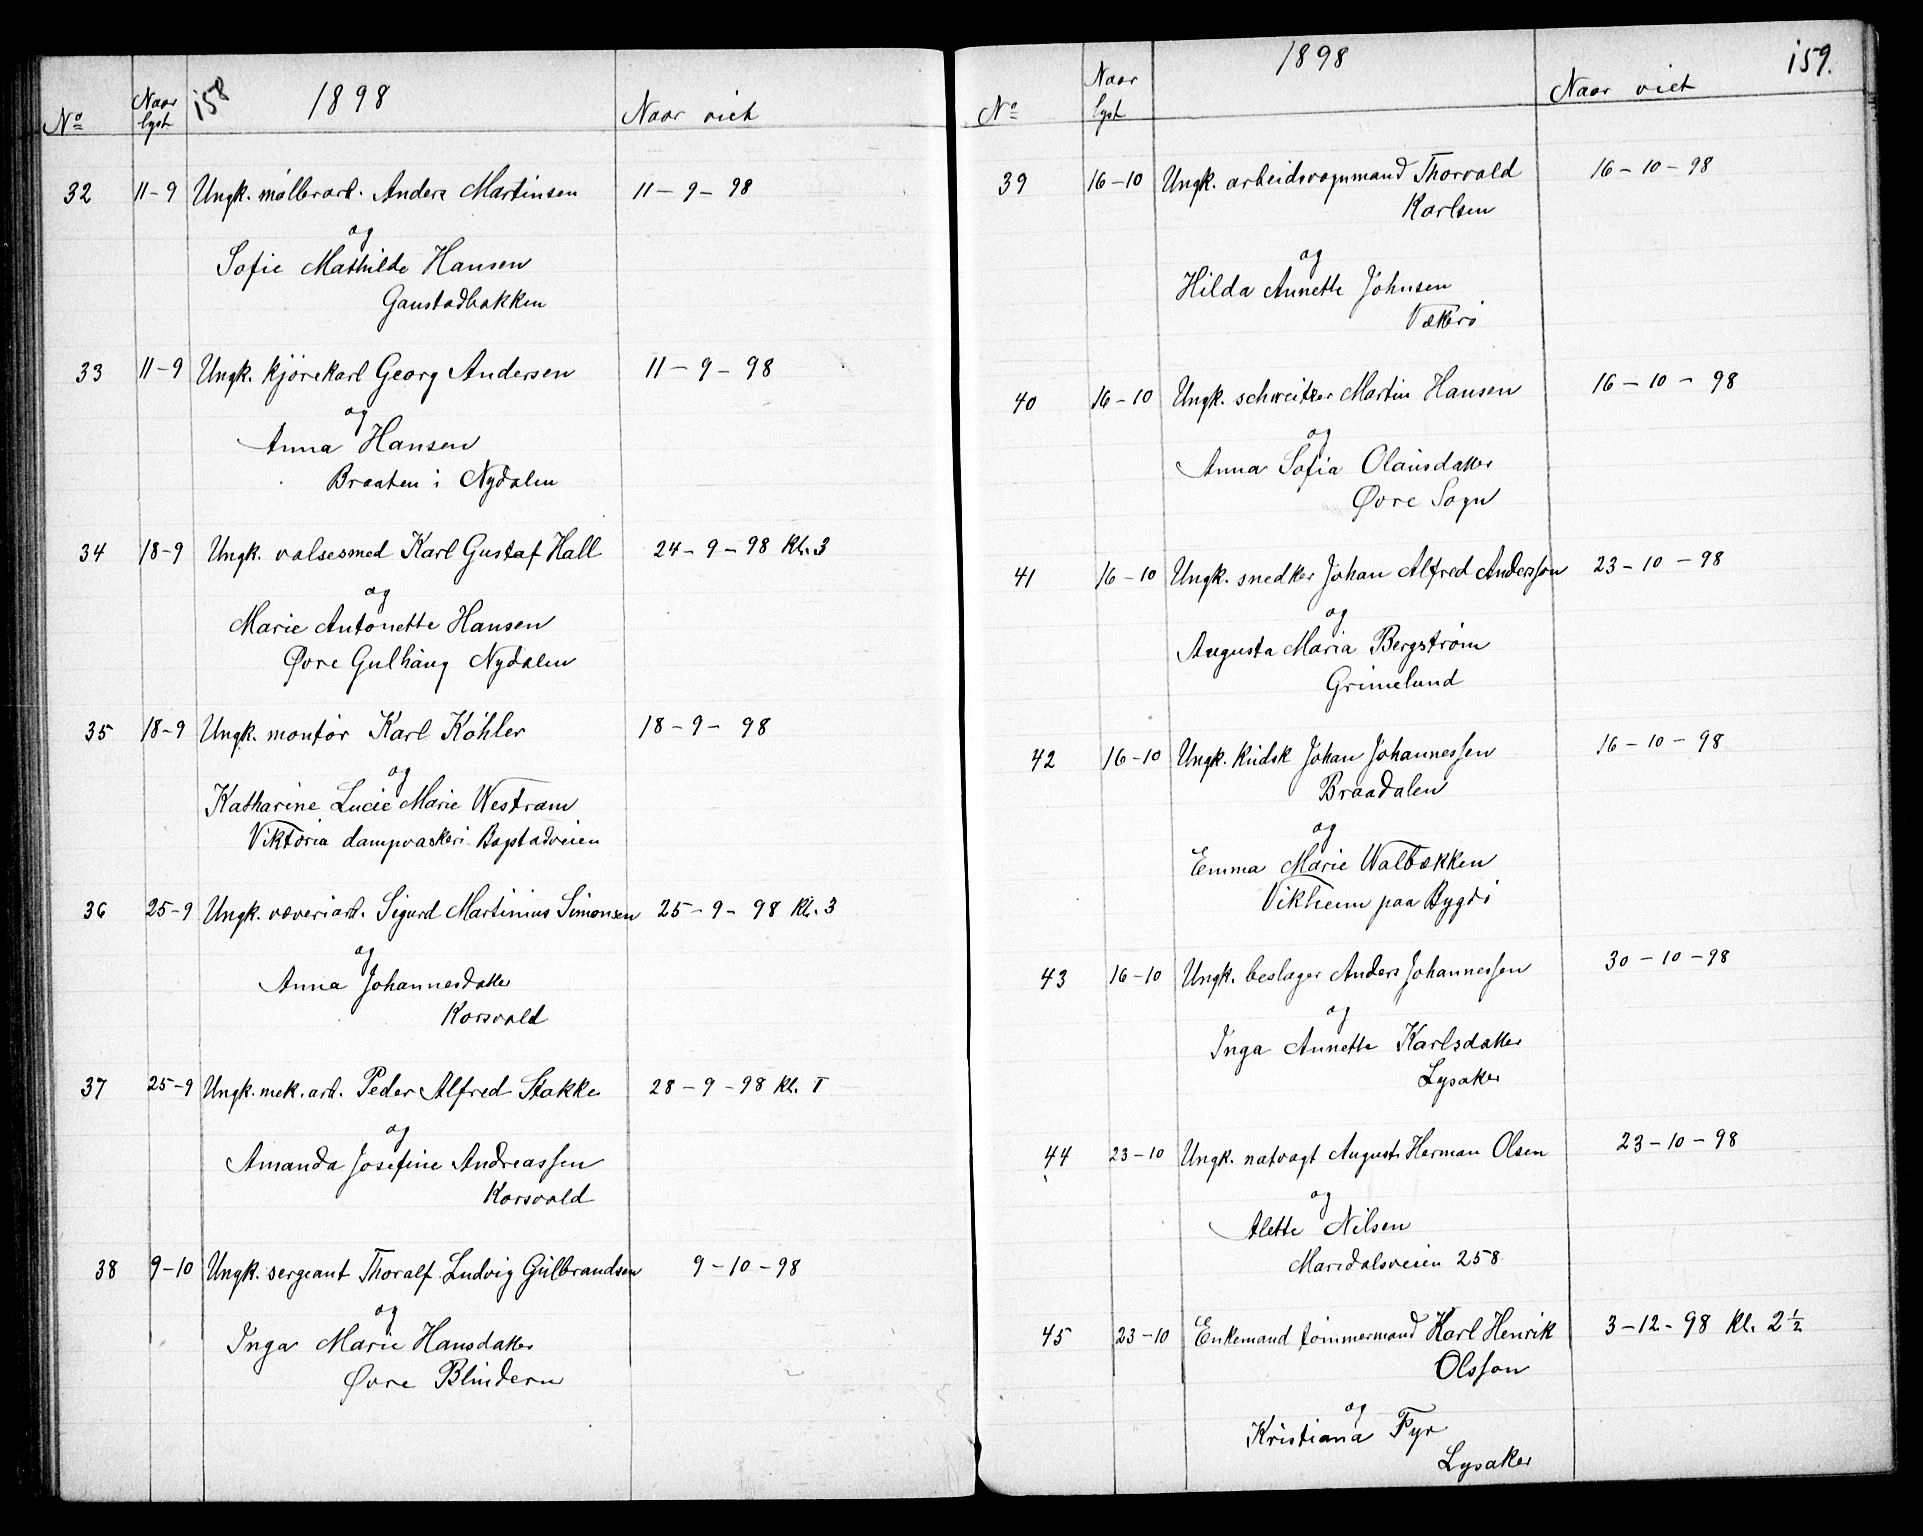 158
1898
No Naar lyst Naar viet
32 11-9 Ungk. møllerarb. Anders Martinsen 11-9-98
og
Sofie Mathilde Hansen
Gaustadbakken
33 11-9 Ungk. kjørekarl Georg Andersen 11-9-98
og
Anna Hansen
Braaten i Nydalen
34 18-9 Ungk. valsesmed Karl Gustaf Hall 24-9-98 Kl. 3
og
Marie Antonette Hansen
Øvre Gulhaug Nydalen
35 18-9 Ungk. montør Karl Köhler 18-9-98
og
Katharine Lucie Marie Westram
Viktoria dampvaskeri Bogstadveien
36 25-9 Ungk. væveriarb. Sigurd Martinius Simonsen 25-9-98 Kl. 3
og
Anna Johannesdatter
Korsvold
37 25-9 Ungk. mek. arb. Peder Alfred Stakke 28-9-98 Kl.
og
Amanda Josefine Andreassen
Korsvold
38 9-10 Ungk. sergeant Thoralf Ludvig Gulbrandsen 9-10-98
og
Inga Marie Hansdatter
Øvre Blindern
159.
1898
No Naar lyst Naar viet
39 16-10 Ungk. arbeidsvognmand Thorvald 16-10-98
Karlsen
og
Hilda Annette Johnsen
Vækerø
40 16-10 Ungk. schweitzer Martin Hansen 16-10-98
og
Anna Sofia Olausdatter
Øvre Sogn
41 16-10 Ungk. snedker Johan Alfred Andersson 23-10-98
og
Augusta Maria Bergstrøm
Grimelund
42 16-10 Ungk. Kudsk Johan Johannessen 16-10-98
Braadalen
og
Emma Marie Walbækken
Vikheim paa Bygdø
43 16-10 Ungk. beslager Anders Johannessen 30-10-98
og
Inga Annette Karlsdatter
Lysaker
44 23-10 Ungk. natvagt August Herman Olsen 23-10-98
og
Alette Nilsen
Maridalsveien 258
45 23-10 Enkemand tømmermand Karl Henrik 3-12-98 Kl. 2½
Olsson
og
Kristiana Fyr
Lysaker